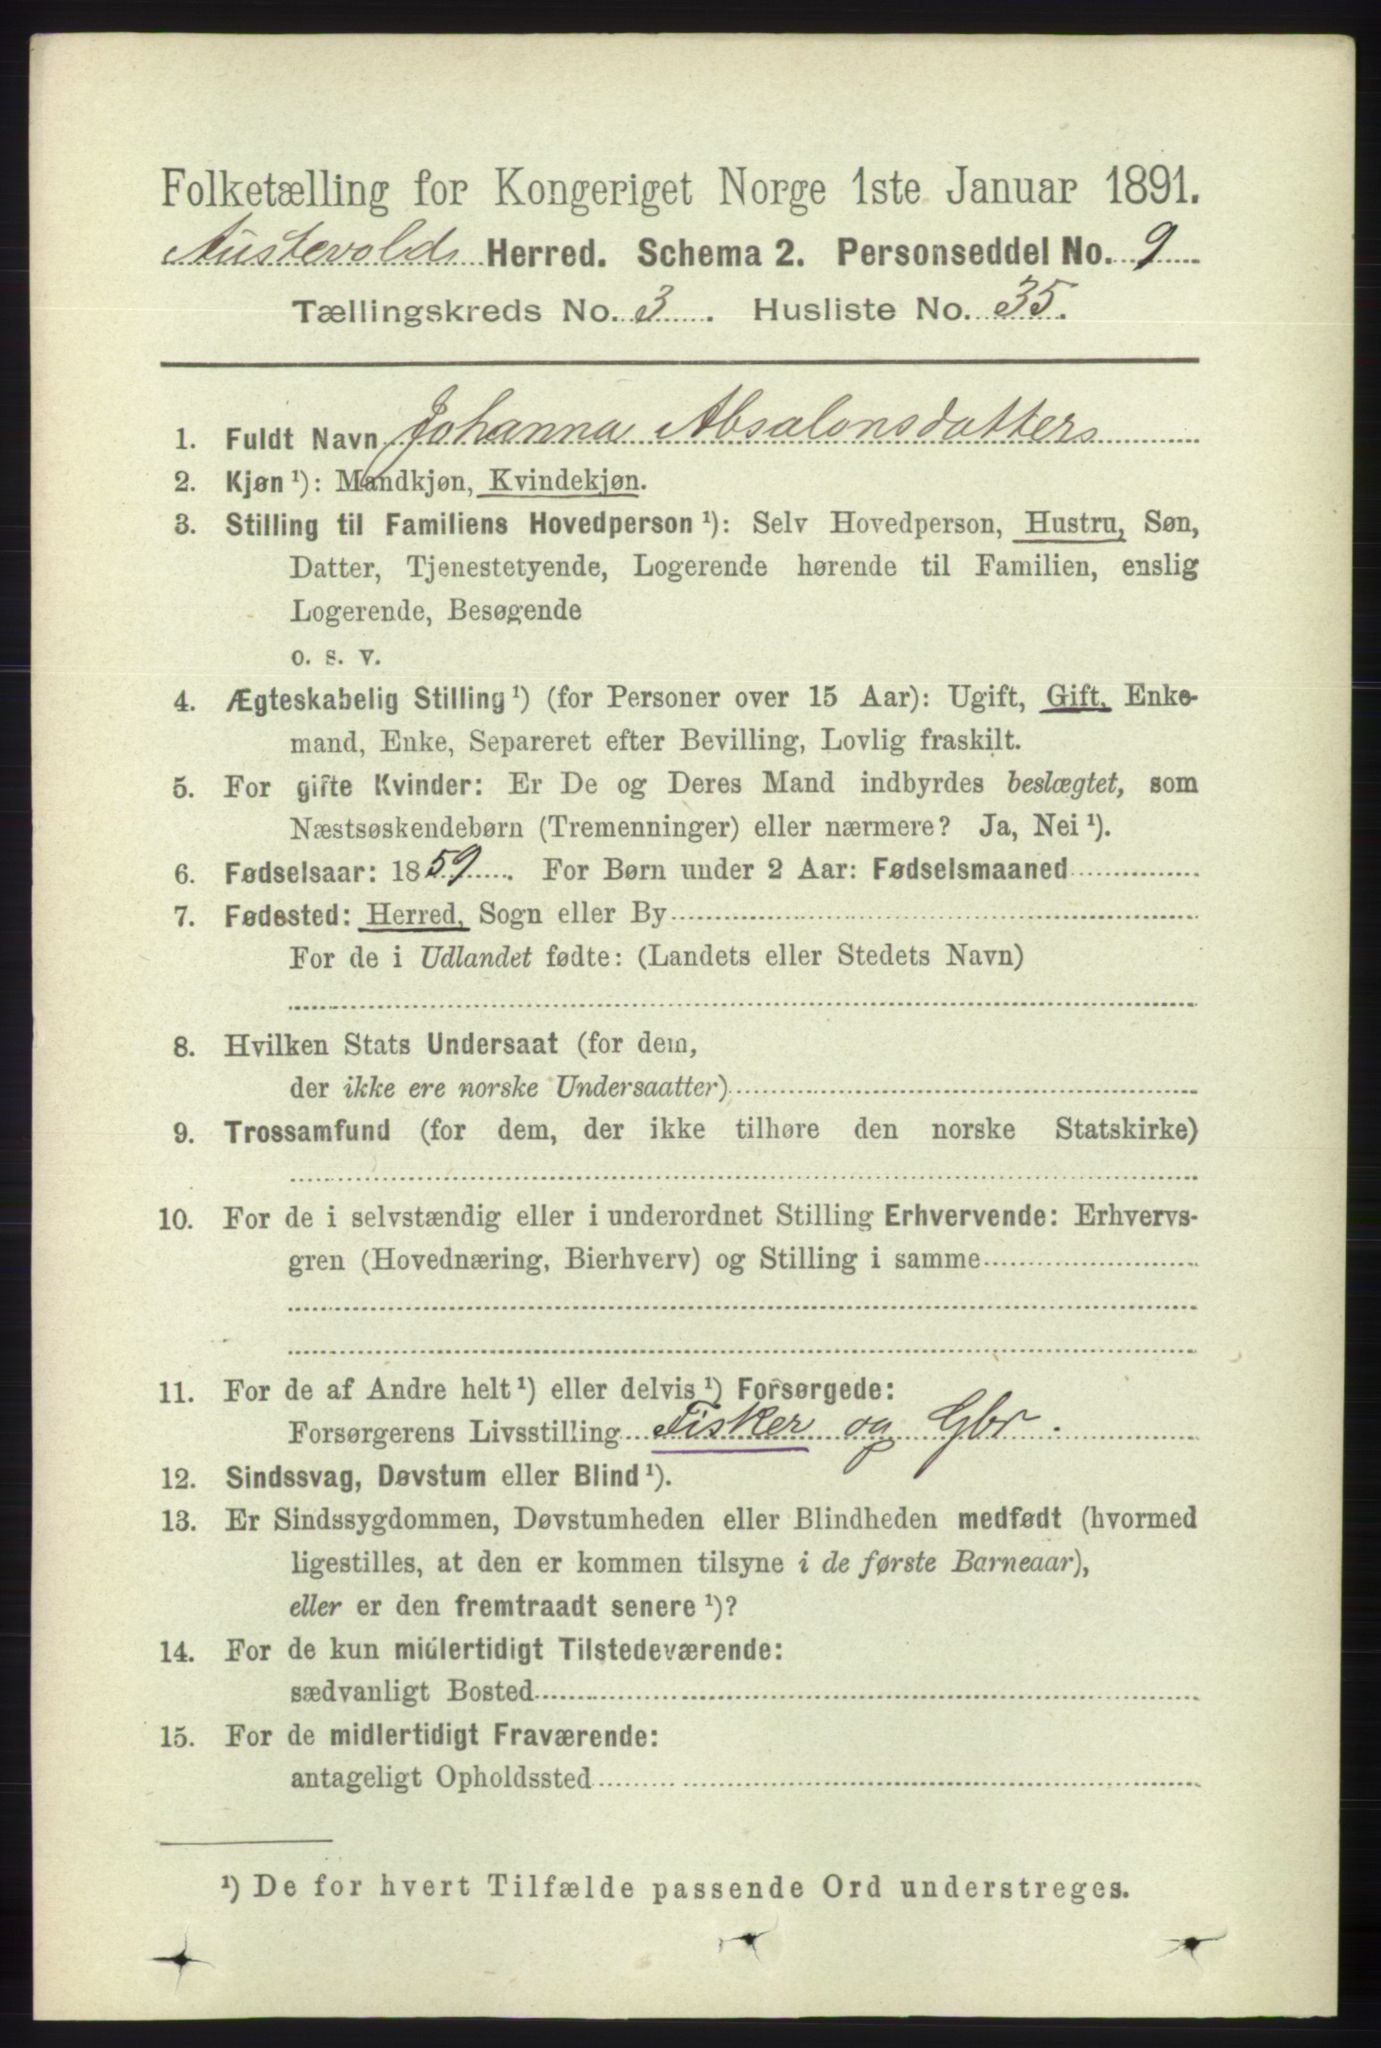 Folketælling for Kongeriget Norge 1ste Januar 1891.
Austevolds Herred. Schema 2. Personseddel No. 9
Tællingskreds No. 3. Husliste No. 35.
1. Fuldt Navn Johanna Absalonsdatters
2. Kjøn ¹): Mandkjøn, Kvindekjøn.
3. Stilling til Familiens Hovedperson ¹): Selv Hovedperson, Hustru, Søn,
Datter, Tjenestetyende, Logerende hørende til Familien, enslig
Logerende, Besøgende
o. s. v.
4. Ægteskabelig Stilling ¹) (for Personer over 15 Aar): Ugift, Gift, Enke-
mand, Enke, Separeret efter Bevilling, Lovlig fraskilt.
5. For gifte Kvinder: Er De og Deres Mand indbyrdes beslægtet, som
Næstsøskendebørn (Tremenninger) eller nærmere? Ja, Nei ¹).
6. Fødselsaar: 1859. For Børn under 2 Aar: Fødselsmaaned
7. Fødested: Herred, Sogn eller By
For de i Udlandet fødte: (Landets eller Stedets Navn)
8. Hvilken Stats Undersaat (for dem,
der ikke ere norske Undersaatter)
9. Trossamfund (for dem, der ikke tilhøre den norske Statskirke)
10. For de i selvstændig eller i underordnet Stilling Erhvervende: Erhvervs-
gren (Hovednæring, Bierhverv) og Stilling i samme
11. For de af Andre helt ¹) eller delvis ¹) Forsørgede:
Forsørgerens Livsstilling Fisker og Gbr.
12. Sindssvag, Døvstum eller Blind ¹).
13. Er Sindssygdommen, Døvstumheden eller Blindheden medfødt (hvormed
ligestilles, at den er kommen tilsyne i de første Barneaar),
eller er den fremtraadt senere ¹)?
14. For de kun midlertidigt Tilstedeværende:
sædvanligt Bosted
15. For de midlertidigt Fraværende:
antageligt Opholdssted
¹) De for hvert Tilfælde passende Ord understreges.